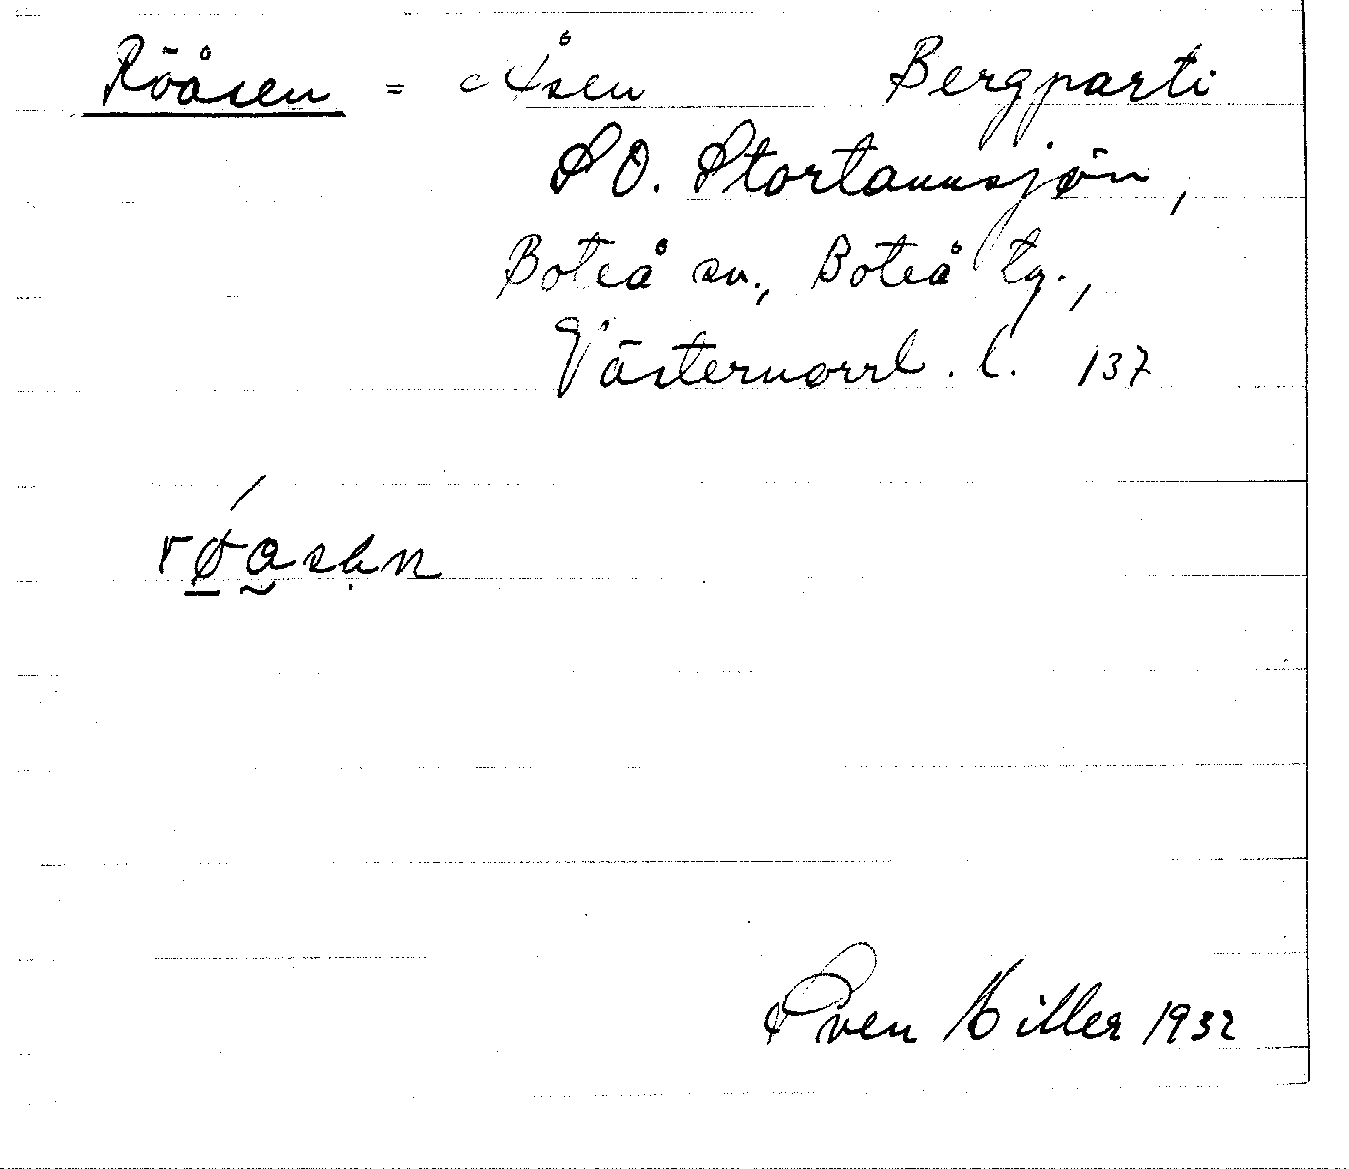 Röåsen = Åsen Bergparti
SO. Stortannsjön,
Boteå sn., Boteå tg.,
Västernorrl. l. 137
røasən
Sven Hiller 1932